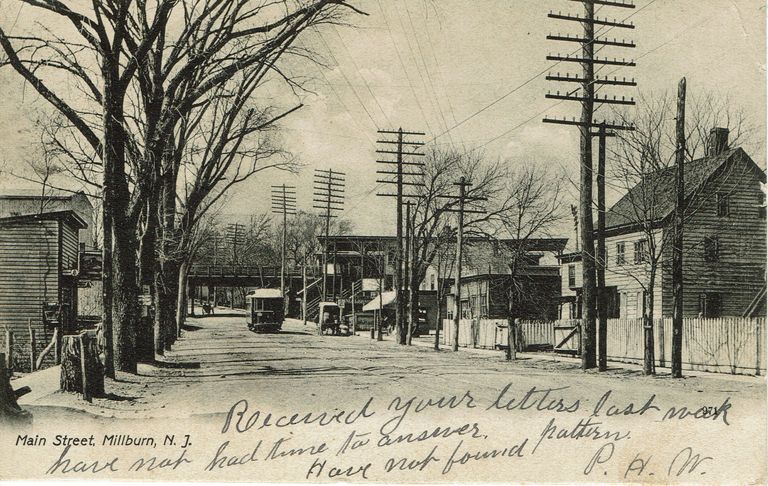 Received your letters last week
Main Street, Millburn, N. J.
have not had time to answer.
Have not found pattern.
P. H. W.